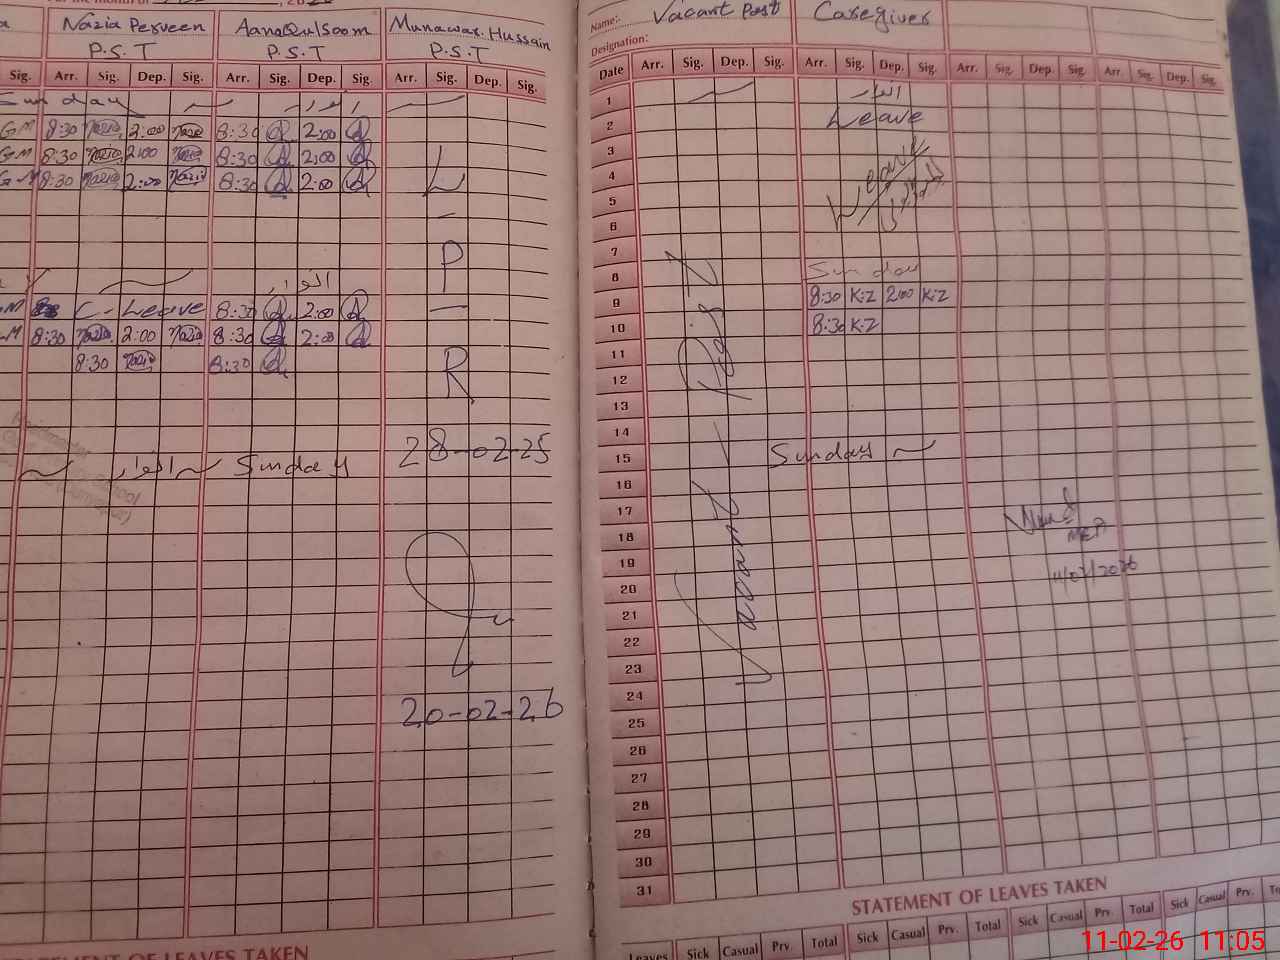 For the month of
Nazia Perveen
P.S.T
AanaQulsoom
P.S.T
Munawar Hussain
P.S.T
Sig. Arr. Sig. Dep. Sig. Arr. Sig. Dep. Sig. Arr. Sig. Dep. Sig.
Sunday اتوار
GM 8:30 Nazia 2:00 Nazia 8:30 2:00
GM 8:30 Nazia 2:00 Nazia 8:30 2:00
GM 8:30 Nazia 2:00 Nazia 8:30 2:00
L
-
P
-
R
28-02-25
20-02-26
اتوار
C-Leave 8:30 2:00
8:30 Nazia 2:00 Nazia 8:30 2:00
8:30 Nazia 8:30
Headmaster
School
اتوار Sunday
STATEMENT OF LEAVES TAKEN
Name:- Vacant Post Caregiver
Designation:
Date Arr. Sig. Dep. Sig. Arr. Sig. Dep. Sig. Arr. Sig. Dep. Sig. Arr. Sig. Dep. Sig.
1 اتوار
2 Leave
3
4 Leave
5
6
7
8 Sunday
9 8:30 K.Z 2:00 K.Z
10 8:30 K.Z
11
12
13
14
15 Sunday
16
17
18
19
20
21
22
23
24
25
26
27
28
29
30
31
Vacant - Post
MEA
11/02/2026
STATEMENT OF LEAVES TAKEN
Leaves Sick Casual Prv. Total Sick Casual Prv. Total Sick Casual Prv. Total Sick Casual Prv.
11-02-26 11:05